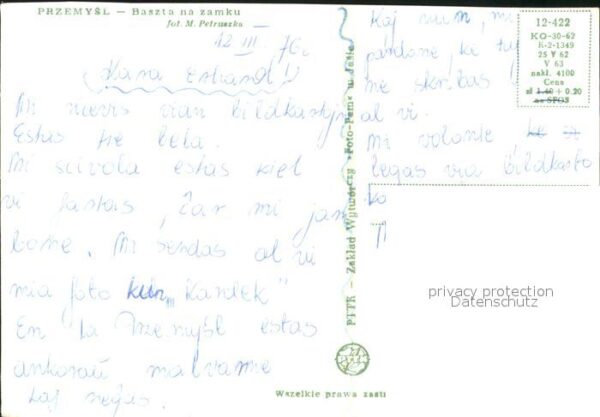 PRZEMYŚL — Baszta na zamku
fot. M. Petruszka
12 III 76.
Kara Edward!
Mi ricevis vian bildkartyn
Estas tre bela.
Mi scivola estas kiel
vi fartas, ĉar mi jam
bone. Mi sendas al vi
mia foto kun "Kardek"
En la Przemyśl estas
ankoraŭ malvarme
kaj neĝas.
Kaj nun, mi
pardone, ke
me skribas
al vi.
Mi volonte,
legas via bildkarto
PTTK — Zakład Wytwórczy »Foto-Pam« w Jaśle
12-422
KO-30-62
K-2-1349
25 V 62
V 63
nakł. 4100
Cena
zł 1.40 + 0.20
na SFOS
privacy protection
Datenschutz
Wszelkie prawa zastr